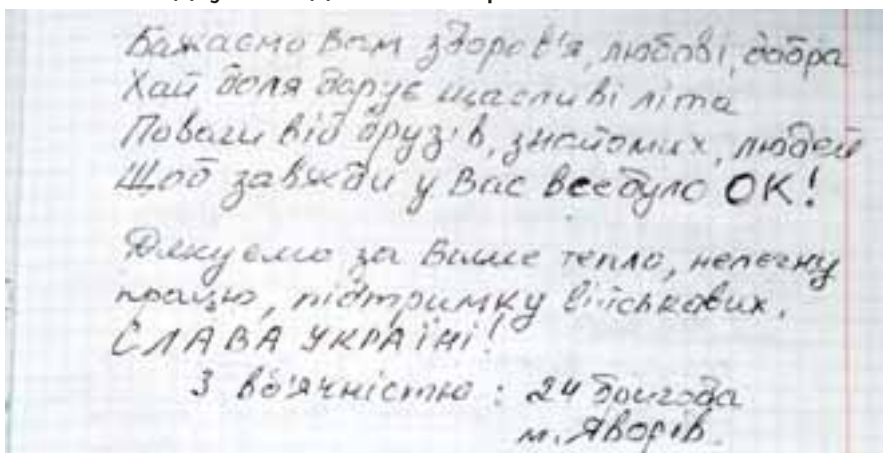 Бажаємо Вам здоров'я, любові, добра
Хай доля дарує щасливі літа
Поваги від друзів, знайомих, людей
Щоб завжди у Вас все було ОК!
Дякуємо за Ваше тепло, нелегку
працю, підтримку військових.
СЛАВА УКРАЇНІ!
З вд'ячністю: 24 бригада
м. Яворів.